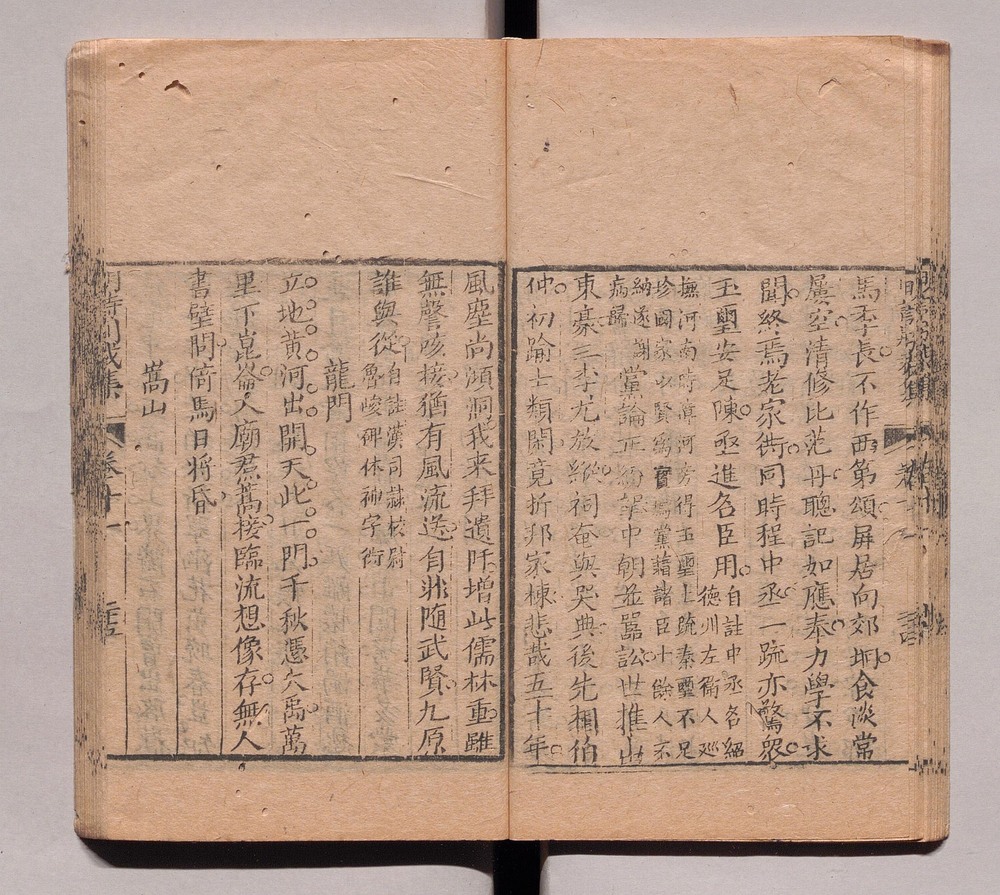 馬季長不作西第頌屏居向郊坰食淡常
屢空清修比范丹聰記如應奉力學不求
聞終焉老家衖同時程中丞一疏亦驚眾
玉璽安足陳亟進名臣用自註中丞名紹
德州左衞人巡
撫河南時漳河旁得玉璽上疏秦璽不足
珍國家以賢為寶薦黨諸臣十餘人不
納遂謝
病歸
黨論正中朝並嚚訟世推出
東豪三李尤放縱祠奄與哭典後先相伯
仲初踰士類閑竟折邦家棟悲哉五十年
風塵尚澒洞我来拜遺阡増此儒林重雖
無謦咳接猶有風流送自非随武賢九原
誰與從自註漢司隸校尉
魯峻碑体神字銜
龍門
立地黃河出開天此一門千秋憑穴禹萬
里下崑崙入廟焄蒿接臨流想像存無人
書壁問倚馬日將昏
嵩山
明詩別裁集
卷十一